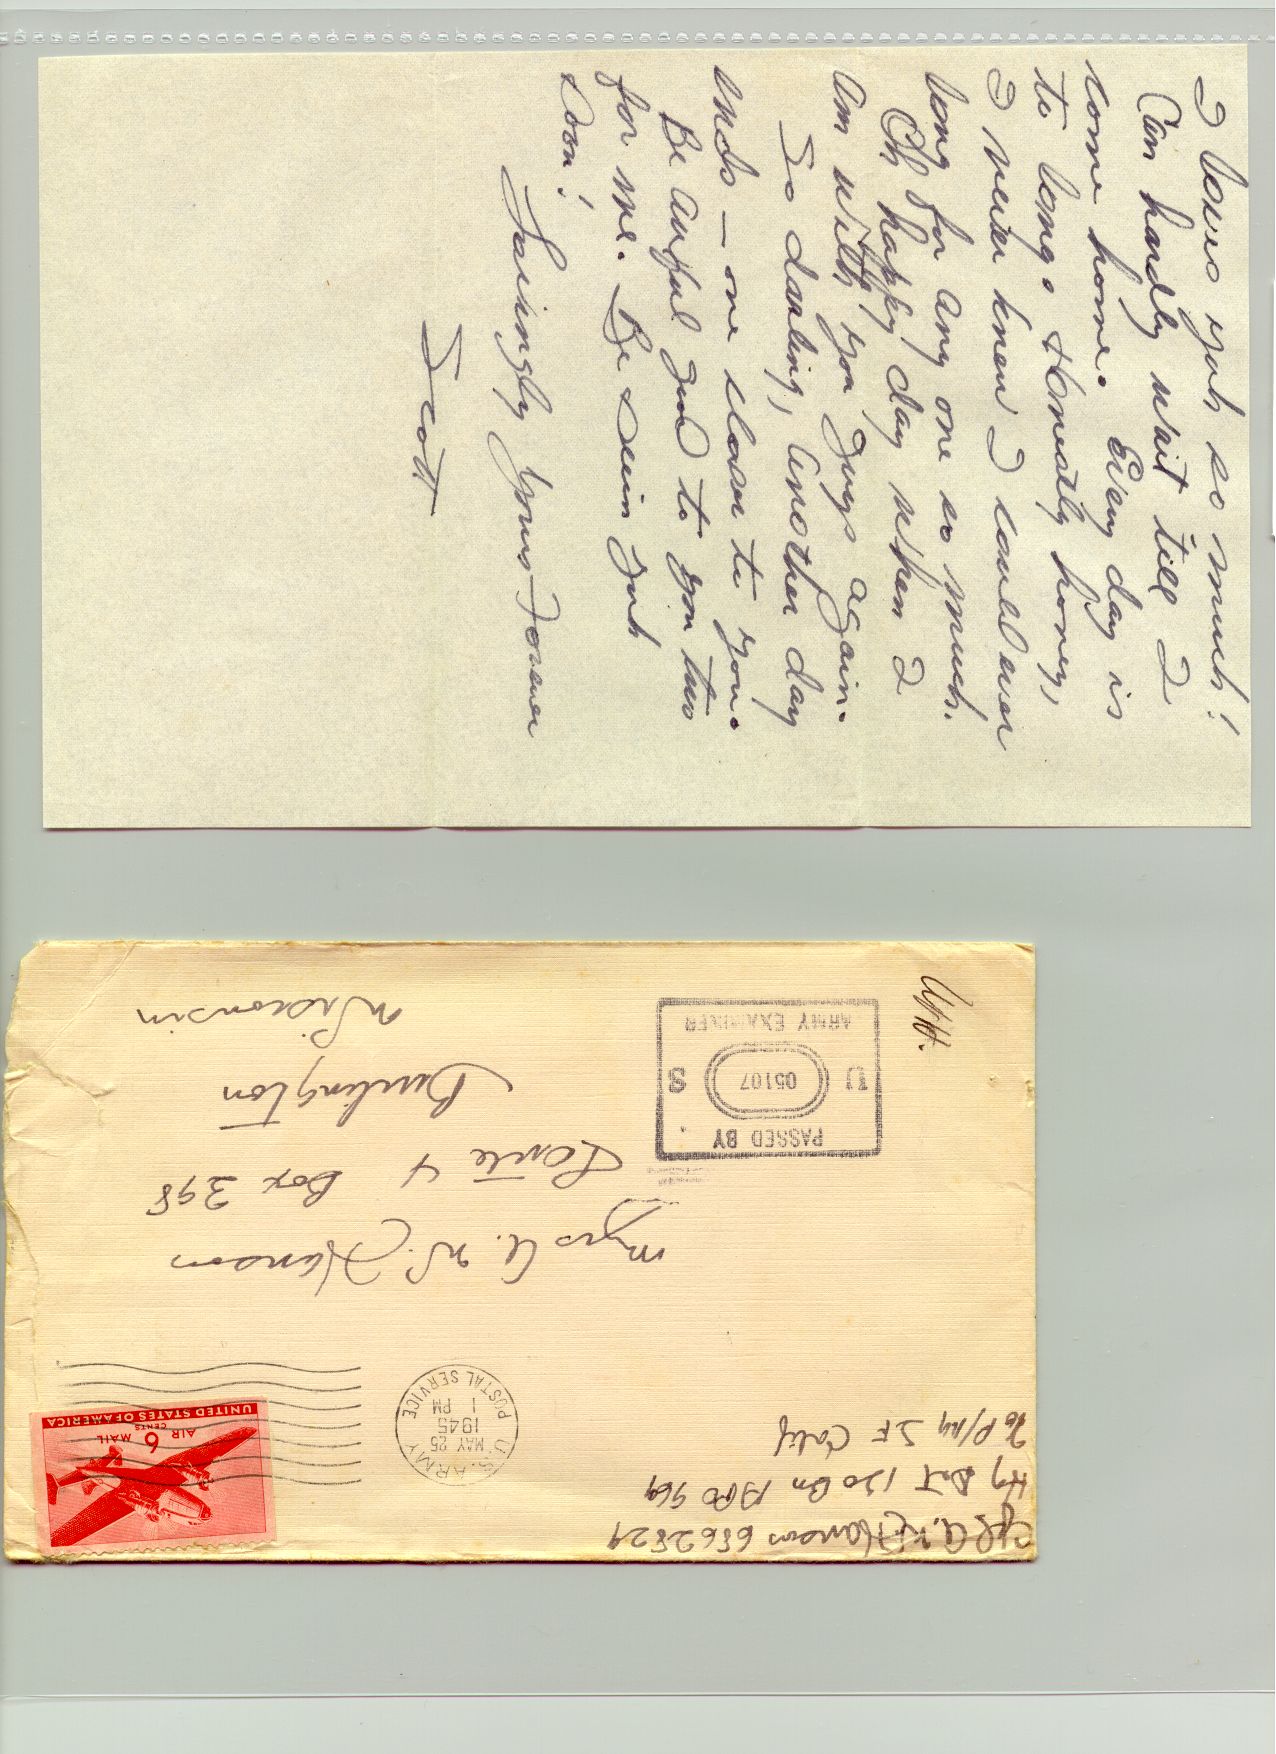 I love yuh so much!
Can hardly wait till I
come home. Every day is
to long. Honestly honey,
I never knew I could ever
long for any one so much.
Oh happy day when I
am with you guys again.
So darling, another day
ends — one closer to you.
Be awful gud to you two
for me. Be seein yuh
soon!
Lovingly yours—Forever
Scott
Cpl A. W. Hanson 6862829
Hq Det 130 Bn APO 969
% P/M S F Calif
U.S. ARMY
MAY 25
1 PM
1945
POSTAL SERVICE
UNITED STATES OF AMERICA
AIR MAIL
6 CENTS
Mrs A. W. Hanson
Route 4 Box 398
Burlington
Wisconsin
PASSED BY
U 05107 S
ARMY EXAMINER